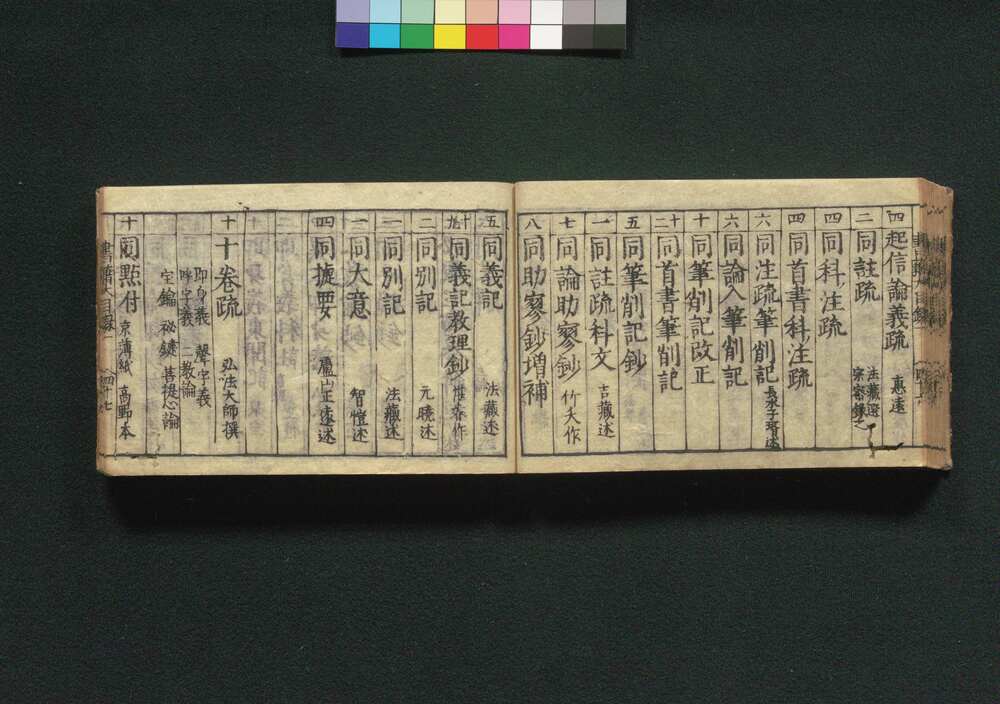 四 起信論義疏 惠遠
二 同註疏 法藏選 宗密録之
四 同科注疏
四 同首書科注疏
六 同注疏筆削記 長水子璿述
六 同論入筆削記
十 同筆削記改正
二十 同首書筆削記
五 同筆削記鈔
一 同註疏科文 吉藏述
七 同論助寥鈔 竹夭作
八 同助寥鈔増補
五 同義記 法藏述
同義記教理鈔 惟春作
二 同別記 元曉述
一 同別記 法藏述
一 同大意 智愷述
四 同捷要 廬山正遠述
十 十卷疏 弘法大師撰
即身義 聲字義
吽字義 二教論
宝鑰 祕鍵 菩提心論
十 同點付 京薄紙 高野本
書籍目録 四十七